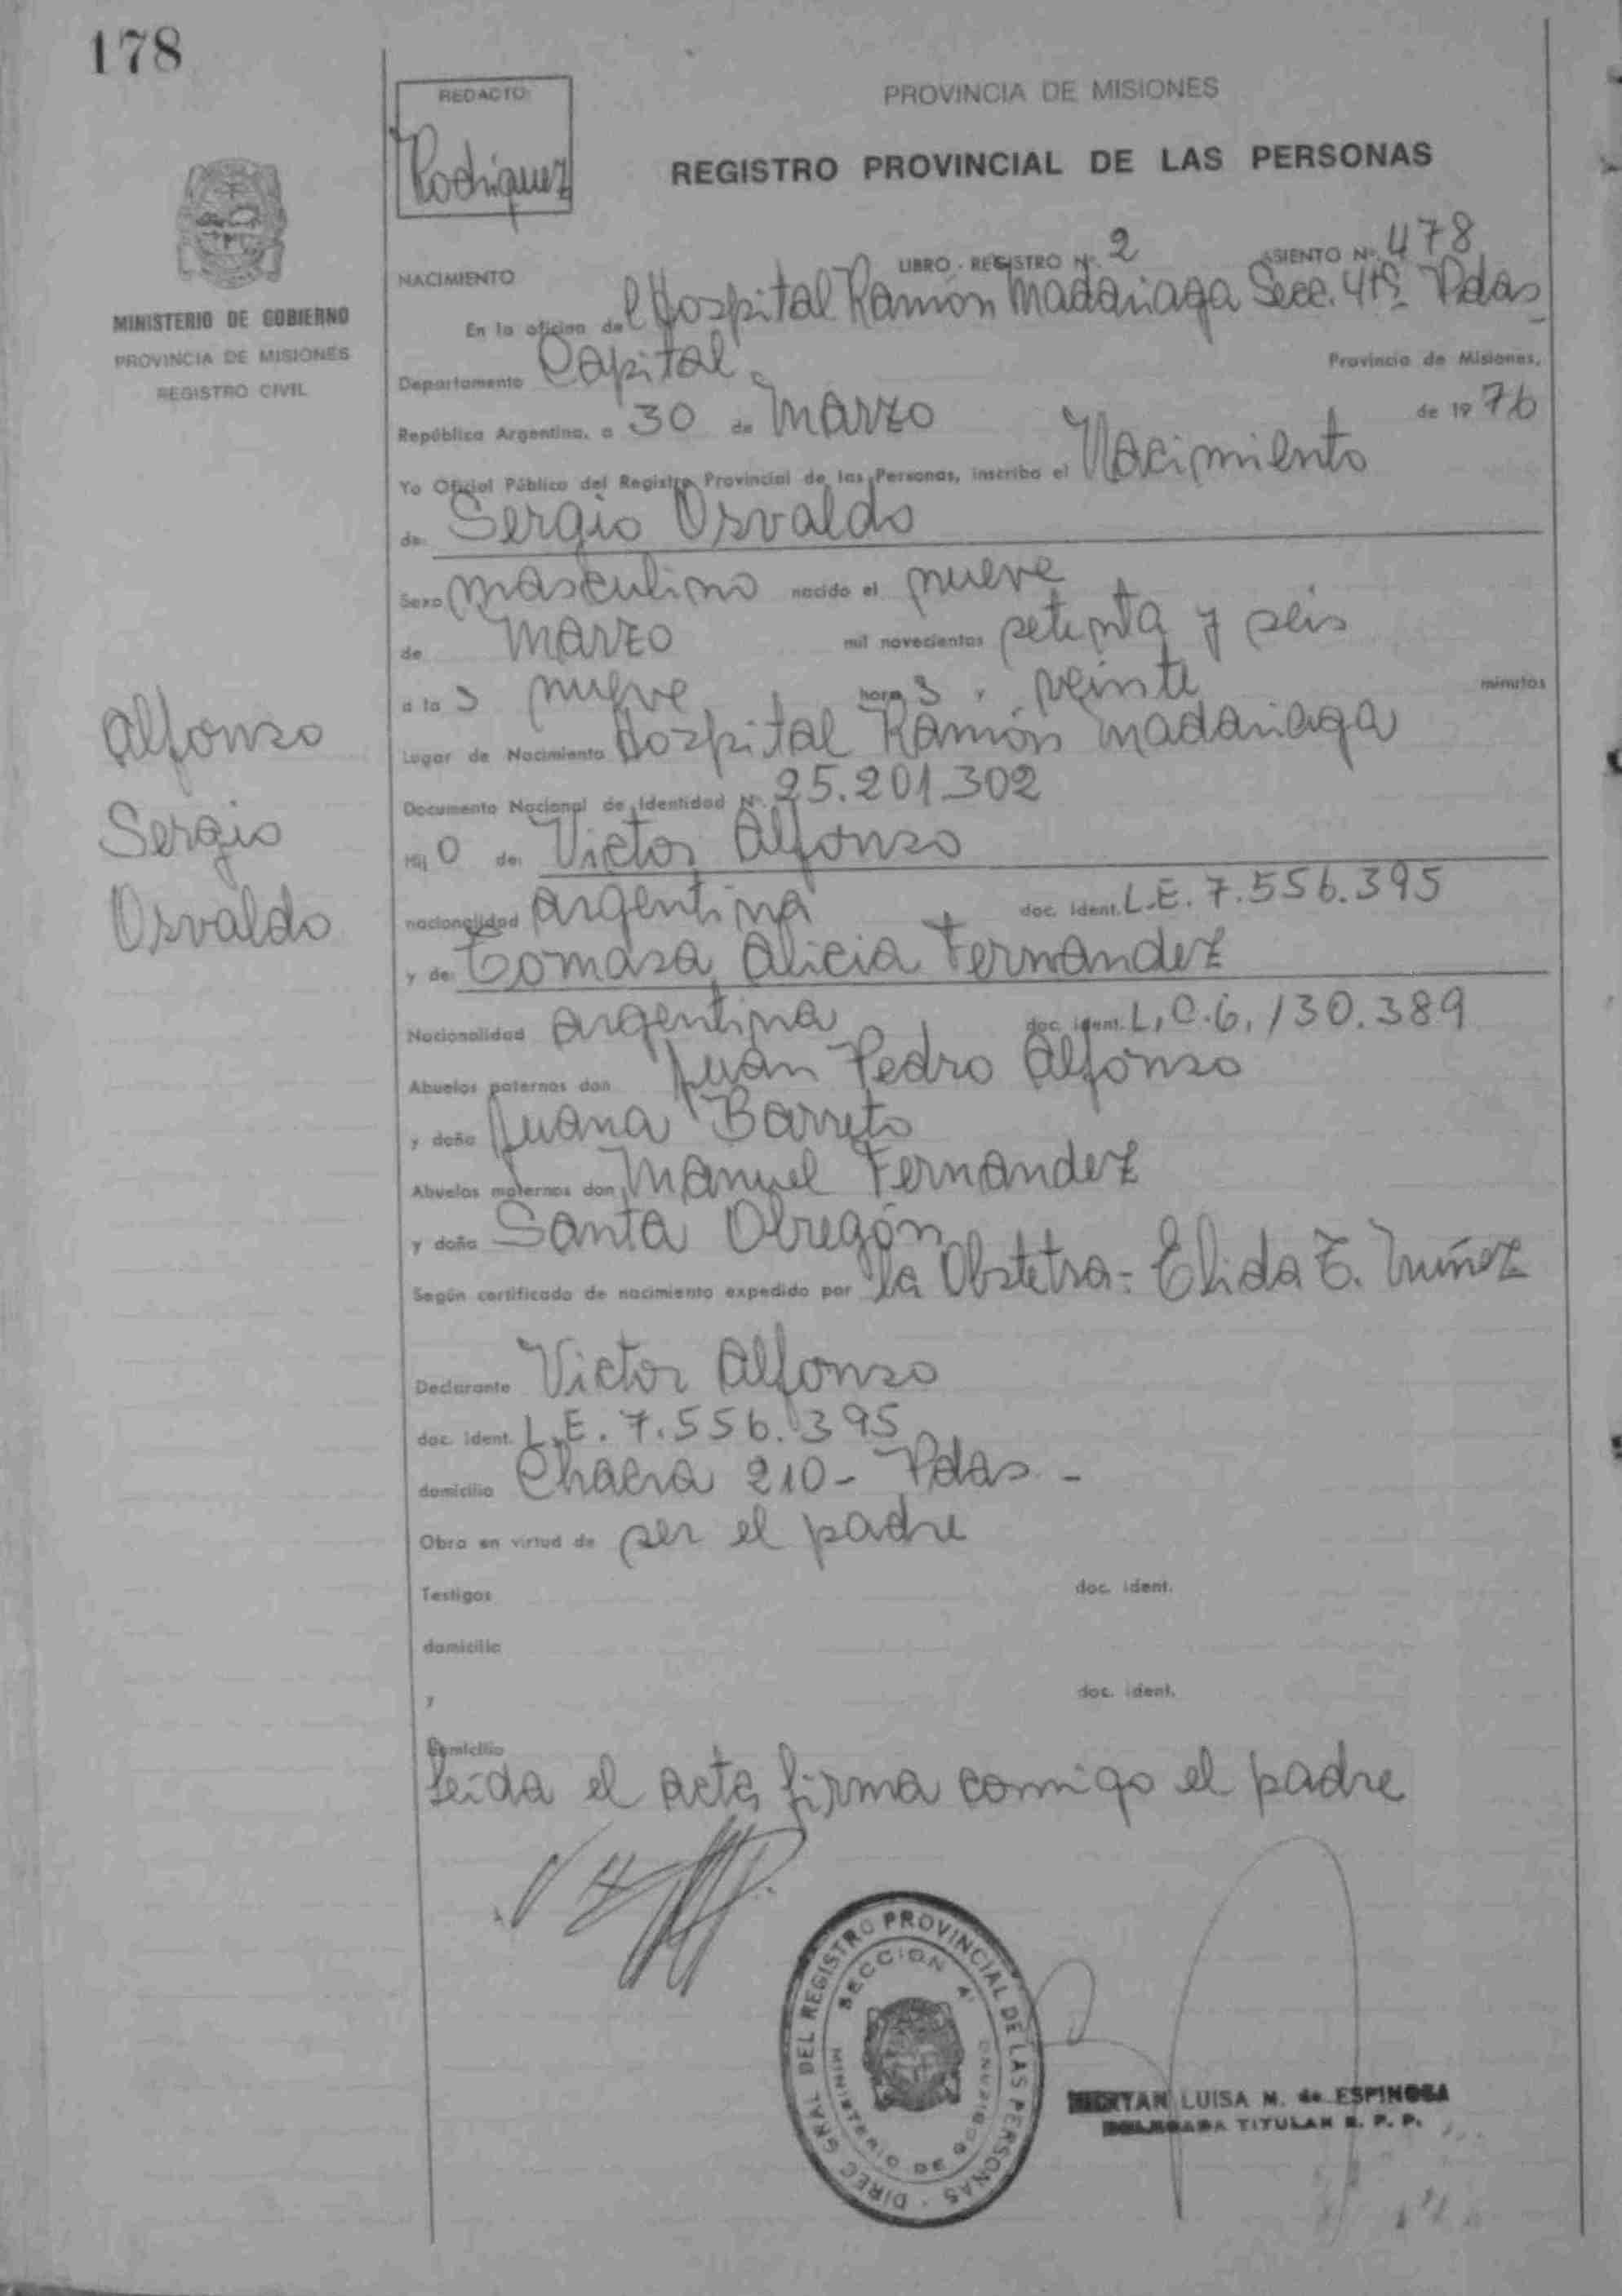 178
REDACTO:
Rodriguez
PROVINCIA DE MISIONES
REGISTRO PROVINCIAL DE LAS PERSONAS
MINISTERIO DE GOBIERNO
PROVINCIA DE MISIONES
REGISTRO CIVIL
NACIMIENTO LIBRO - REGISTRO Nº. 2 ASIENTO Nº. 478
En la oficina de l Hospital Ramón Madariaga Secc. 4tª Pdas
Departamento Capital Provincia de Misiones,
República Argentina, a 30 de Marzo de 1976
Yo Oficial Público del Registro Provincial de las Personas, inscribo el Nacimiento
de Sergio Osvaldo
Sexo masculino nacido el nueve
de Marzo mil novecientos setenta y seis
a las nueve horas y veinte minutos
Lugar de Nacimiento Hospital Ramón Madariaga
Documento Nacional de Identidad Nº. 25.201.302
Hijo de: Victor Alfonso
nacionalidad argentina doc. ident. L.E. 7.556.395
y de: Tomasa Alicia Fernandez
Nacionalidad argentina doc. ident. L.C. 6.130.389
Abuelos paternos don Juan Pedro Alfonso
y doña Juana Barreto
Abuelos maternos don Manuel Fernandez
y doña Santa Obregón
Según certificado de nacimiento expedido por la Obstetra- Elida E. Nuñez
Declarante Victor Alfonso
doc. ident. L.E. 7.556.395
domicilio Chacra 210- Pdas -
Obra en virtud de ser el padre
Testigos doc. ident.
domicilio
y doc. ident.
Domicilio
leida el acta firma comigo el padre
Alfonso
Sergio
Osvaldo
DIREC GRAL DEL REGISTRO PROVINCIAL DE LAS PERSONAS
SECCION 4ª
MINISTERIO DE GOBIERNO
LUISA M. de ESPINOSA
DELEGADA TITULAR R. P. P.